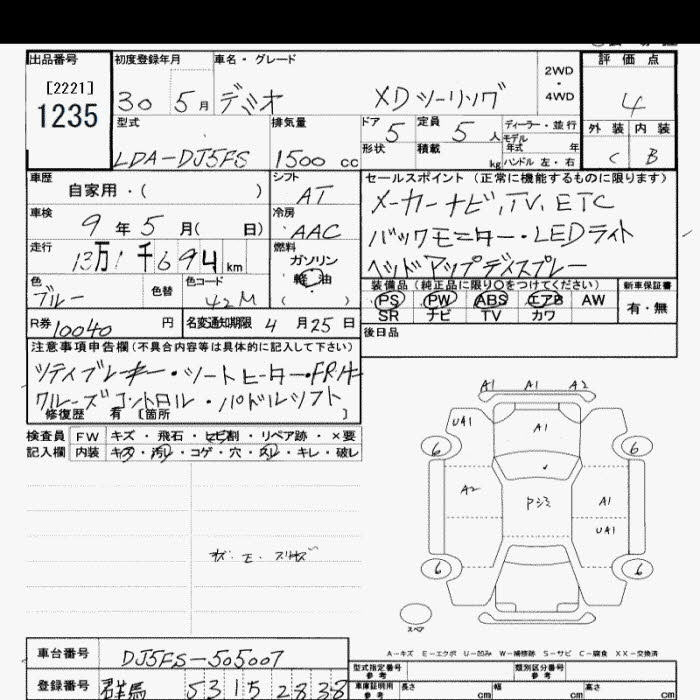 出品番号 初度登録年月 車名・グレード 評価点
[2221]
1235
30 5月 デミオ XDツーリング 2WD・4WD 4
型式 排気量 ドア 5 定員 5人 ディーラー・並行 外装 内装
モデル年式 年
LDA-DJ5FS 1500 cc 形状 積載 kg ハンドル 左・右 C B
車歴 シフト セールスポイント (正常に機能するものに限ります)
自家用・( ) AT メーカーナビ,TV,ETC
車検 冷房
9年5月( 日) AAC バックモニター・LEDライト
走行 燃料
13万1千694km ガソリン ヘッドアップディスプレー
軽油
( )
色 色替 色コード 装備品 (純正品に限り○をつけてください) 新車保証書
ブルー 42M PS PW ABS エアB AW 有・無
SR ナビ TV カワ
R券 10040円 名変通知期限 4月25日 後日品
注意事項申告欄 (不具合内容等は具体的に記入して下さい)
シティブレーキ・シートヒーター・FR
クルーズコントロル・パドルシフト
修復歴 有 [箇所 ]
検査員 FW キズ・飛石・ヒビ割・リペア跡・×要
記入欄 内装 キズ・汚レ・コゲ・穴・スレ・キレ・破レ
A1 A1 A2
UA1 A1
6 6
A2 Pシミ A1
UA1
6 6
スペア
A-キズ E-エクボ U-凹み W-補修跡 S-サビ C-腐食 XX-交換済
車台番号 DJ5FS-505007
型式指定番号 参考 類別区分番号 参考
登録番号 群馬 531 5 2838
車庫証明用 参考 長さ cm 幅 cm 高さ cm